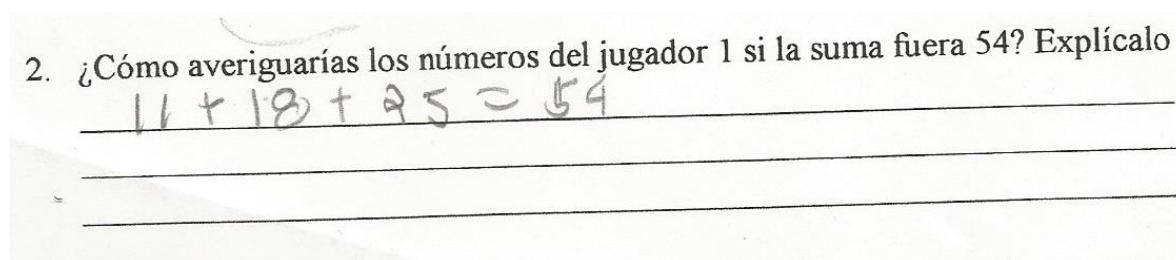 2. ¿Cómo averiguarías los números del jugador 1 si la suma fuera 54? Explícalo
11 + 18 + 25 = 54